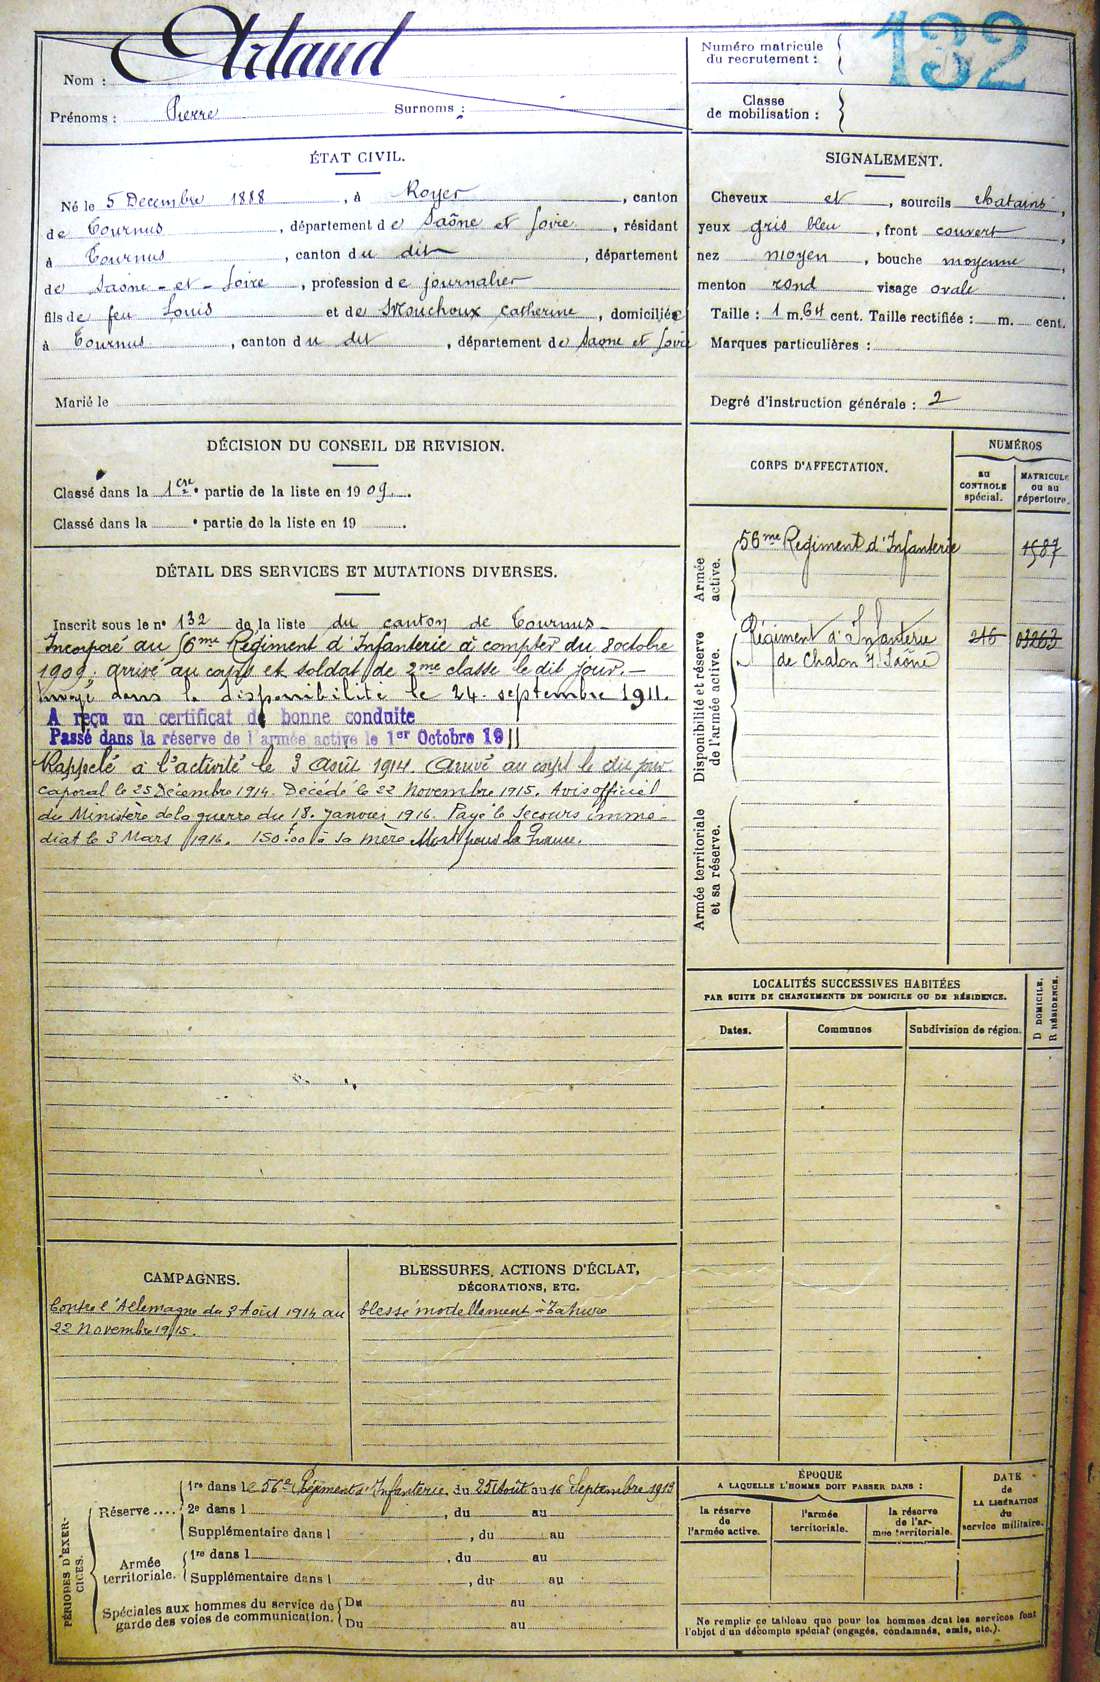 Nom : Arlaud
Prénoms : Pierre Surnoms :
Numéro matricule
du recrutement : 132
Classe
de mobilisation :
ÉTAT CIVIL.
Né le 5 Décembre 1888, à Royer, canton
de Tournus, département de Saône et Loire, résidant
à Tournus, canton du dit, département
de Saone-et-Loire, profession de journalier
fils de feu Louis et de Mouchoux Catherine, domiciliée
à Tournus, canton du dit, département de Saone et Loire
Marié le
SIGNALEMENT.
Cheveux et, sourcils chatains,
yeux gris bleu, front couvert,
nez moyen, bouche moyenne,
menton rond visage ovale.
Taille : 1 m. 64 cent. Taille rectifiée : m. cent.
Marques particulières :
Degré d'instruction générale : 2
DÉCISION DU CONSEIL DE REVISION.
Classé dans la 1ère partie de la liste en 1909.
Classé dans la • partie de la liste en 19 .
DÉTAIL DES SERVICES ET MUTATIONS DIVERSES.
Inscrit sous le n° 132 de la liste du canton de Tournus
Incorporé au 56me Régiment d'Infanterie à compter du 8 octobre
1909. arrivé au corps et soldat de 2me classe le dit jour.
Envoyé dans la disponibilité le 24 septembre 1911.
A reçu un certificat de bonne conduite
Passé dans la réserve de l'armée active le 1er Octobre 1911
Rappelé à l'activité le 3 Août 1914. Arrivé au corps le dit jour
caporal le 25 Décembre 1914. Décédé le 22 Novembre 1915. Avis officiel
du Ministère de la guerre du 18 Janvier 1916. Payé le Secours immé-
diat le 3 Mars 1916. 150f00 à sa mère Mort pour la France.
CORPS D'AFFECTATION.
NUMÉROS
au
CONTROLE
spécial.
MATRICULE
ou au
répertoire.
Armée
active.
56me Régiment d'Infanterie 1587
Disponibilité et réserve
de l'armée active.
Régiment d'Infanterie 216 03263
de Chalon s/ Saône
Armée territoriale
et sa réserve.
LOCALITÉS SUCCESSIVES HABITÉES
PAR SUITE DE CHANGEMENTS DE DOMICILE OU DE RÉSIDENCE.
Dates. Communes Subdivision de région.
D DOMICILE.
R RÉSIDENCE.
CAMPAGNES.
Contre l'Allemagne du 3 Août 1914 au
22 Novembre 1915.
BLESSURES, ACTIONS D'ÉCLAT,
DÉCORATIONS, ETC.
blessé mortellement à Tahure
PÉRIODES D'EXER-
CICES.
Réserve ....
1re dans le 56e Régiment d'Infanterie du 25 Août au 16 Septembre 1913
2e dans l , du au
Supplémentaire dans l , du au
Armée
territoriale.
1re dans l , du au
Supplémentaire dans l , du au
Spéciales aux hommes du service de
garde des voies de communication.
Du au
Du au
ÉPOQUE
A LAQUELLE L'HOMME DOIT PASSER DANS :
la réserve
de
l'armée active.
l'armée
territoriale.
la réserve
de l'ar-
mée territoriale.
DATE
de
LA LIBÉRATION
du
service militaire.
Ne remplir ce tableau que pour les hommes dont les services font
l'objet d'un décompte spécial (engagés, condamnés, omis, etc.).